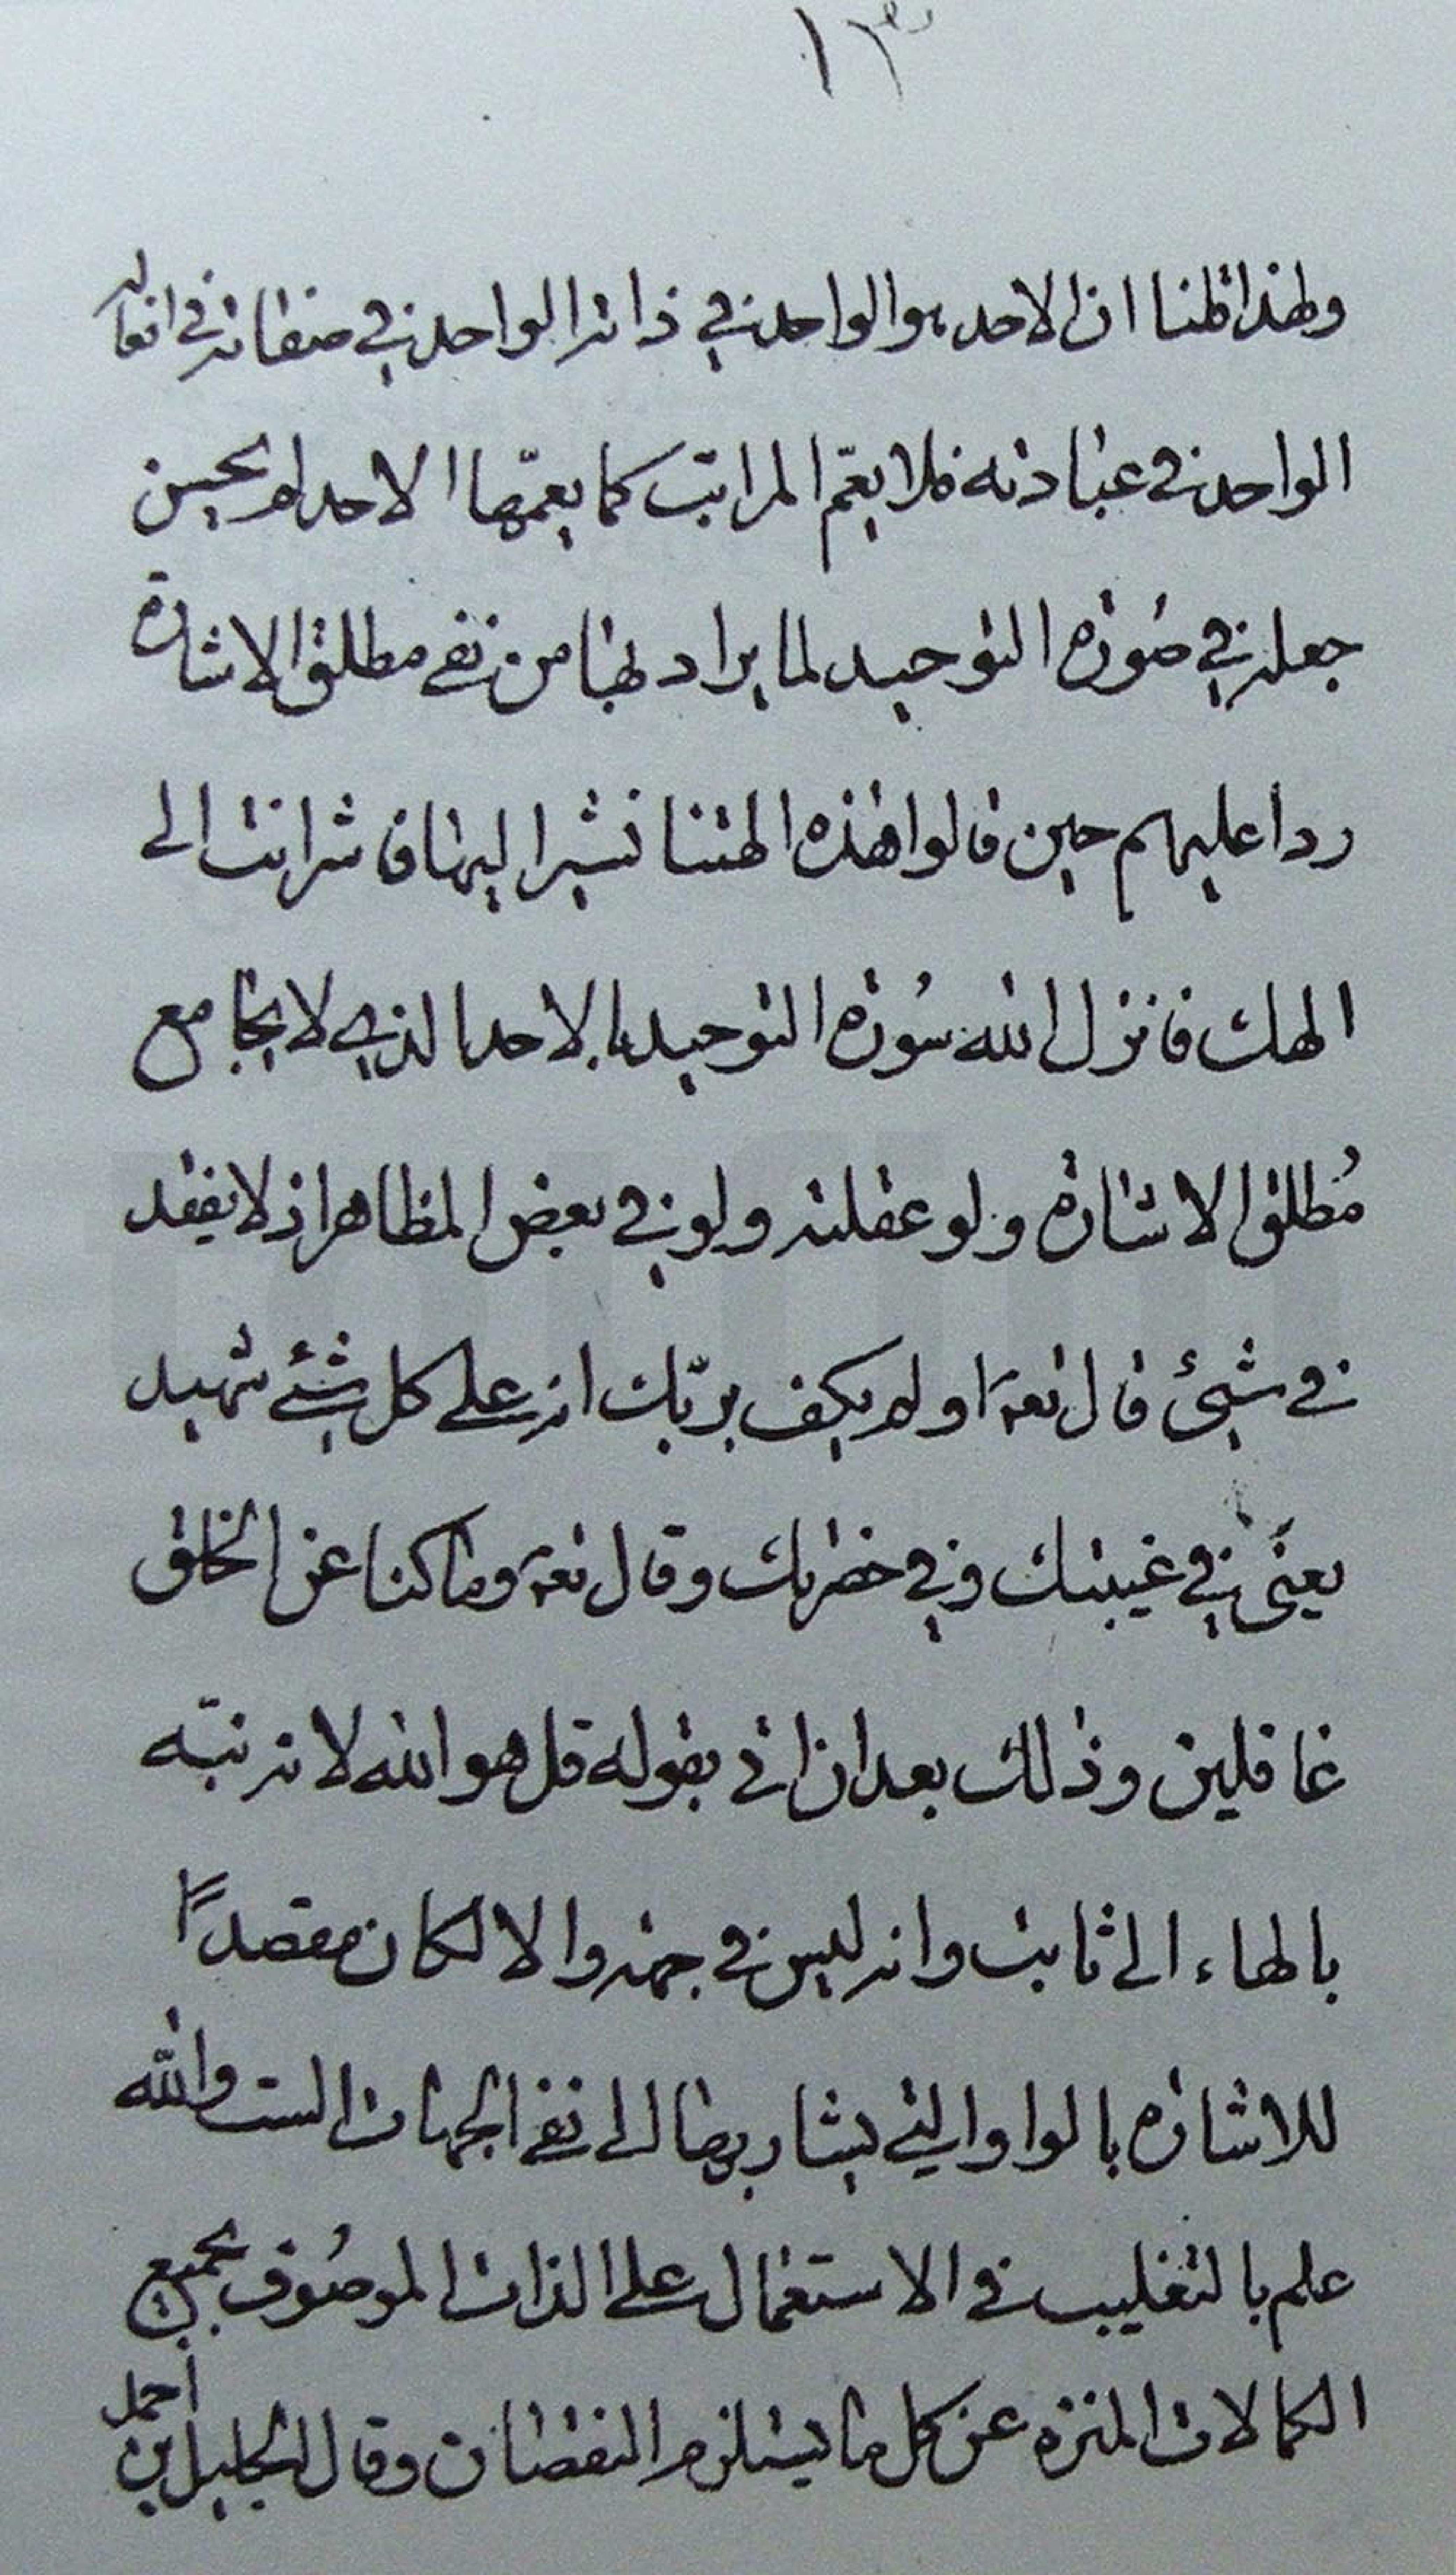 ١٣
ولهذا قلنا ان الاحد هو الواحد في ذاته الواحد في صفاته في افعاله
الواحد في عبادته فلا يعمّ المراتب كما يعمّها الاحد لم يحسن
جعله في صُورة التوحيد لما يراد بها من نفي مطلق الاشارة
ردا عليهم حين قالوا هذه الهتنا نشير اليها فاشر انت الى
الهك فانزل الله سُورة التوحيد بالاحد الذي لا يجامع
مُطلق الاشارة ولو عقلية ولو في بعض المظاهر اذ لا يفقد
في شيئ قال تعالى اولم يكف بربّك انه على كل شئ شهيد
يعنى في غيبتك وفي حضرتك وقال تعالى وما كنا عن الخلق
غافلين وذلك بعد ان اتى بقوله قل هو الله لانه نبّه
بالهاء الى ثابت وانه ليس في جهة والا لكان مقصداً
للاشارة بالواو التي يشار بها الى نفي الجهات الست والله
علم بالتغليب في الاستعمال على الذات الموصُوف بجميع
الكمالات المنزه عن كل ما يستلزم النقصان وقال الخليل بن احمد